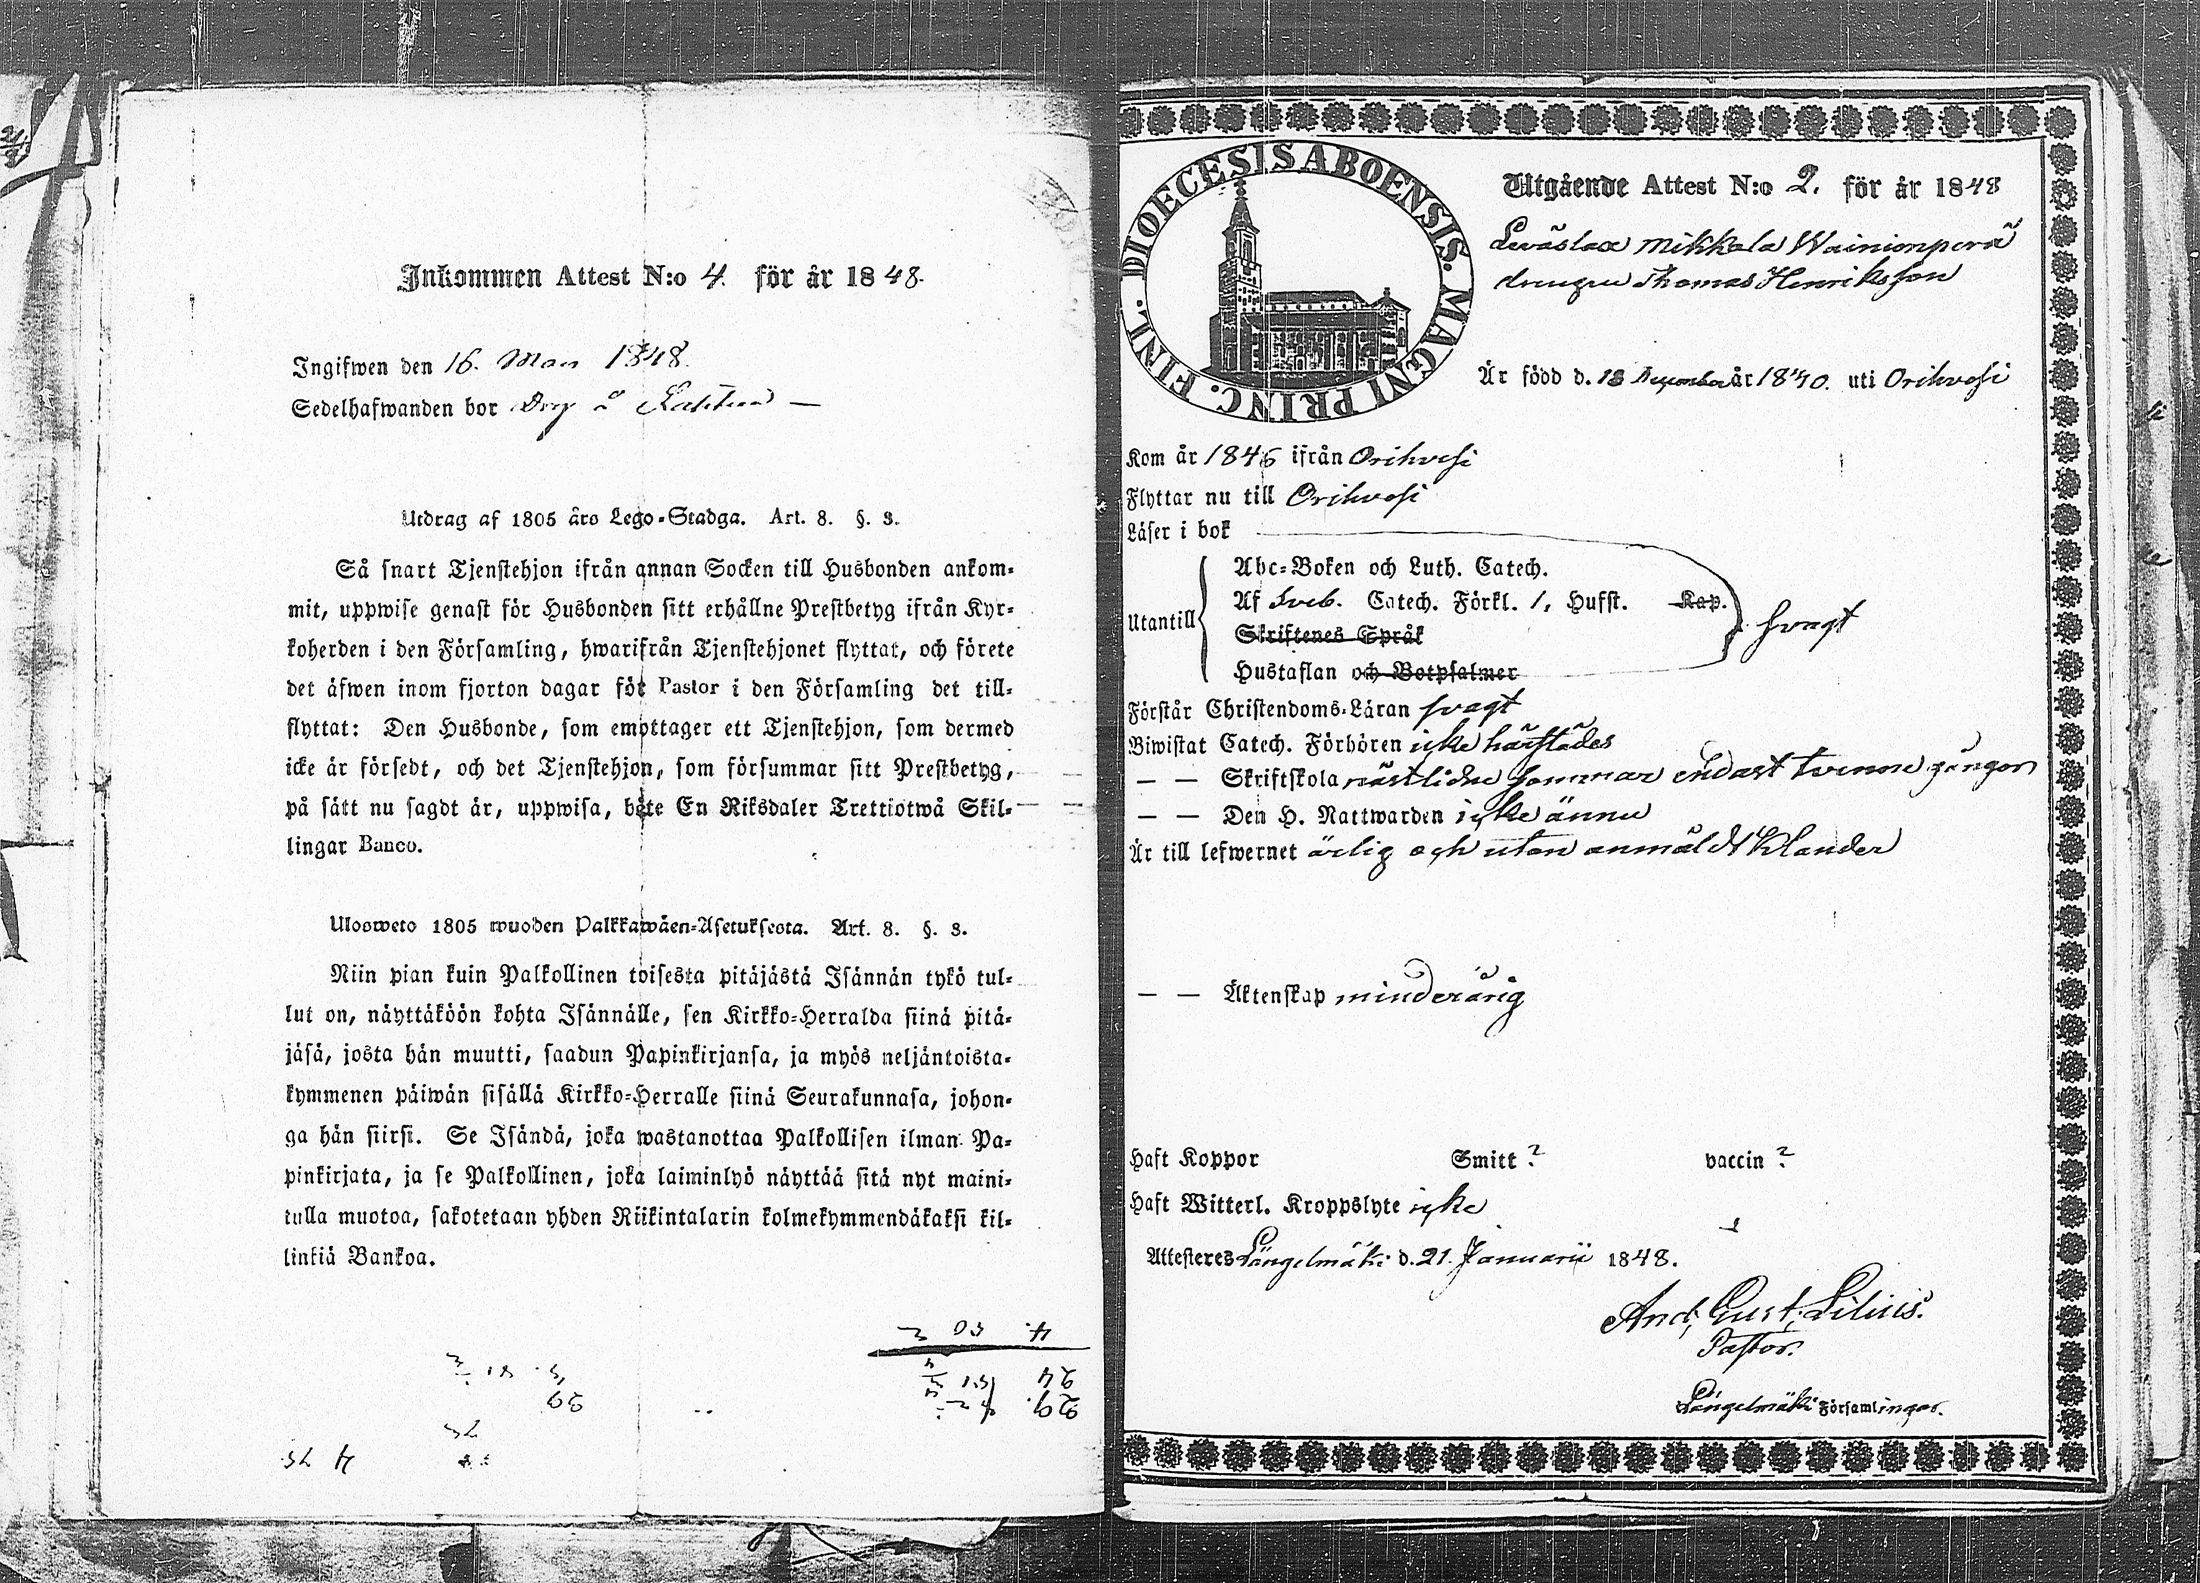 Inkommen Attest N:o 4. för år 1848.
Ingifwen den 16. Mars 1848.
Sedelhafwanden bor Drg å
Utdrag af 1805 års Lego-Stadga. Art. 8. §. 3.
Så snart Tjenstehjon ifrån annan Socken till Husbonden ankom-
mit, uppwise genast för Husbonden sitt erhållne Prestbetyg ifrån Kyr-
koherden i den Församling, hwarifrån Tjenstehjonet flyttat, och förete
det äfwen inom fjorton dagar för Pastor i den Församling det till-
flyttat: Den Husbonde, som emottager ett Tjenstehjon, som dermed
icke är försedt, och det Tjenstehjon, som försummar sitt Prestbetyg,
på sätt nu sagdt är, uppwisa, böte En Riksdaler Trettiotwå Skil-
lingar Banco.
Uloswetto 1805 wuoden Palkkawäen-Asetuksesta. Art. 8. §. 3.
Niin pian kuin Palkollinen toisesta pitäjästä Isännän tykö tul-
lut on, näyttäköön kohta Isännälle, sen Kirkko-Herralda siinä pitä-
jäsä, josta hän muutti, saadun Papinkirjansa, ja myös neljäntoista-
kymmenen päiwän sisällä Kirkko-Herralle siinä Seurakunnasa, johon-
ga hän siirsi. Se Isändä, joka wastanottaa Palkollisen ilman Pa-
pinkirjata, ja se Palkollinen, joka laiminlyö näyttää sitä nyt maini-
tulla muotoa, sakotetaan yhden Riikintalarin kolmekymmendäkaksi kil-
linkiä Bankoa.
DIOECESIS ABOENSIS. MAGNI PRINC. FINL.
Utgående Attest N:o 2. för år 1848
Leväslax Mikkala Wainionperä
drengen Thomas Henriksson
Är född d. 18 December år 1830. uti Orihvesi
Kom år 1846 ifrån Orihvesi
Flyttar nu till Orihvesi
Läser i bok
Utantill
Abc-Boken och Luth. Catech.
Af Sveb. Catech. Förkl. 1, Hufst. Kap.
Skriftenes Språk
Hustaflan och Botpsalmer
svagt
Förstår Christendoms-Läran svagt
Biwistat Catech. Förhören icke härstädes
— — Skriftskola nästlidne sommar endast tvenne gångor
— — Den H. Nattwarden icke ännu
Är till lefwernet ärlig och utan anmäldt klander
— — Äktenskap minderårig
Haft Koppor Smitt? vaccin?
Haft Witterl. Kroppslyte icke
Attesteres Längelmäki d. 21. Januarii 1848.
And. Gust. Lilius.
Pastor.
Längelmäki Församlingar.